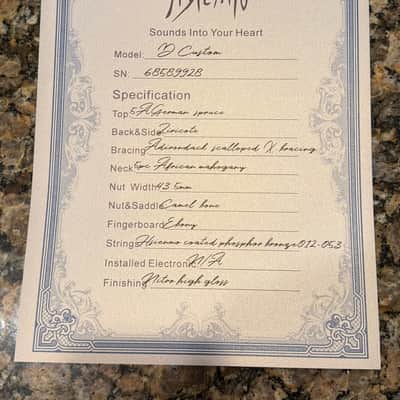 Sounds Into Your Heart
Model: D Custom
SN: 68589928
Specification
Top 5A German spruce
Back&Side Ziricote
Bracing Adirondack scalloped X bracing
Neck 5pc African mahogany
Nut Width 43.5mm
Nut&Saddle Camel bone
Fingerboard Ebony
String Hsienmo coated phosphor bronze 012-053
Installed Electroni N/A
Finishing Nitro high gloss